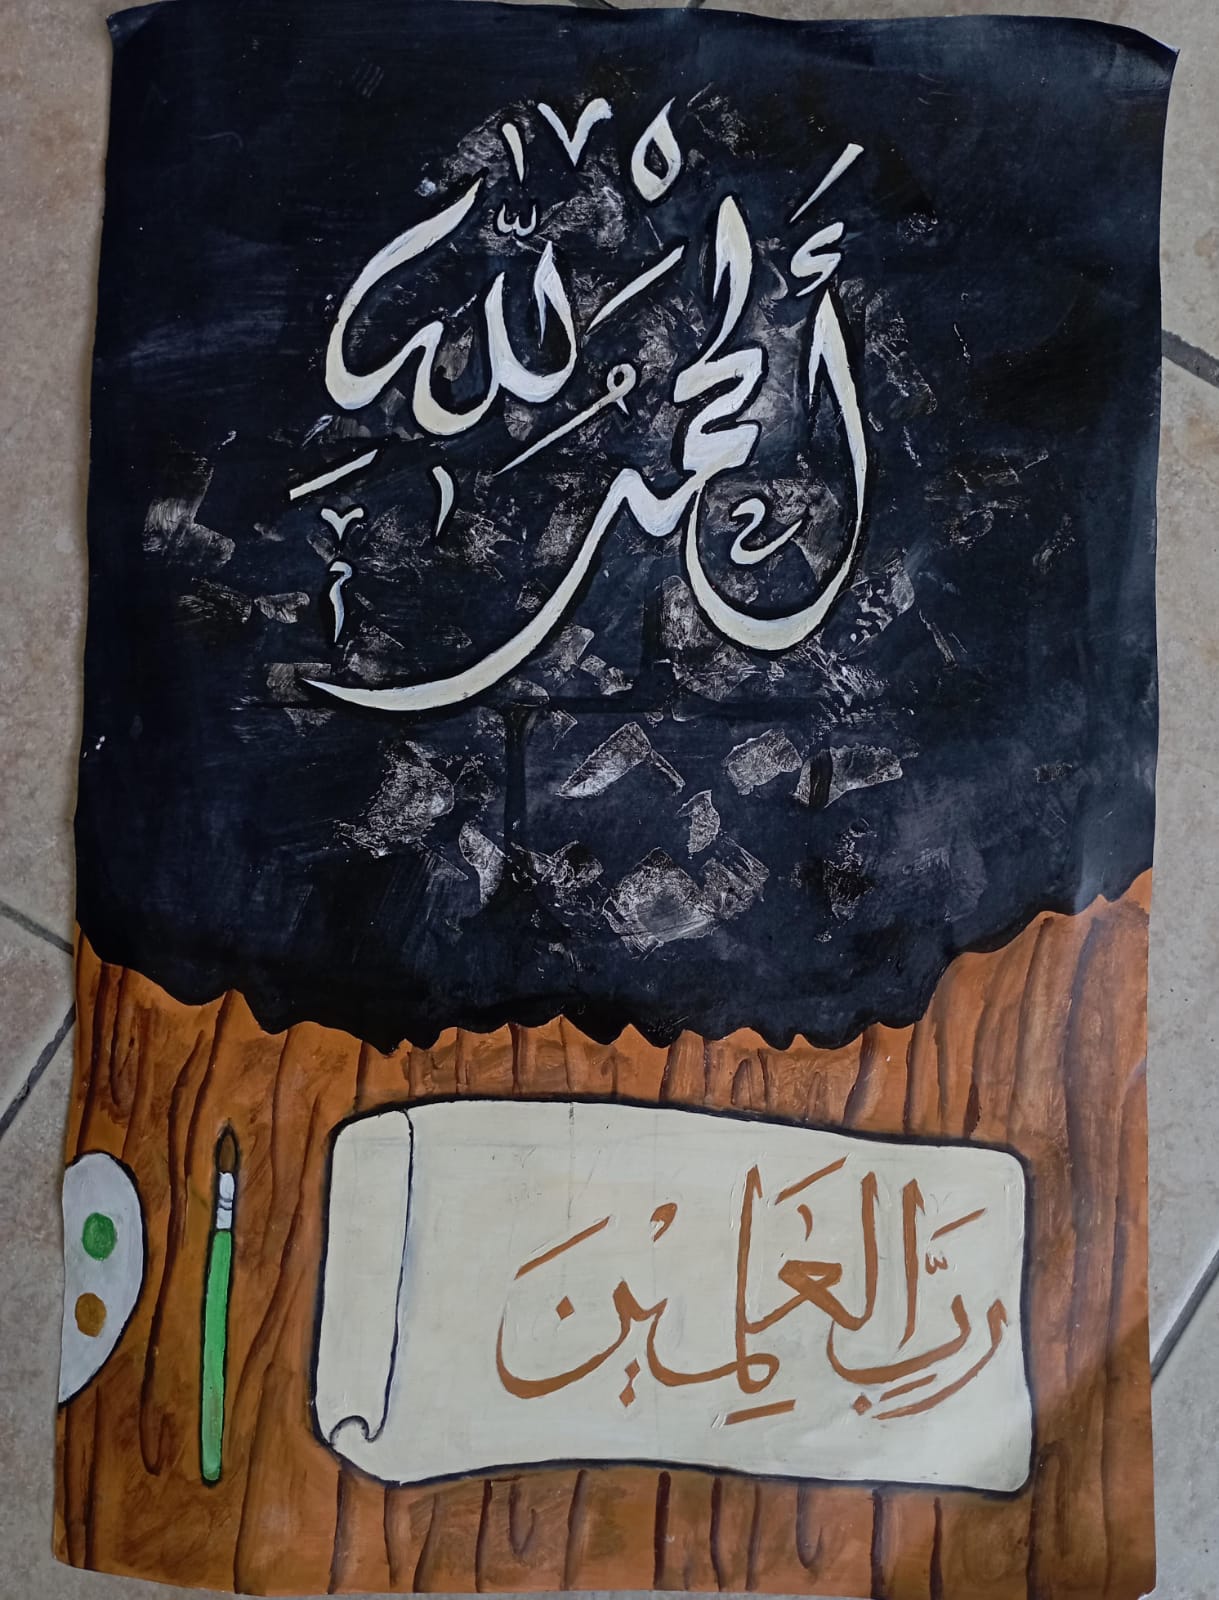 أَلْحَمْدُ لِلّٰهِ
رَبِّ الْعَالَمِيْنَ